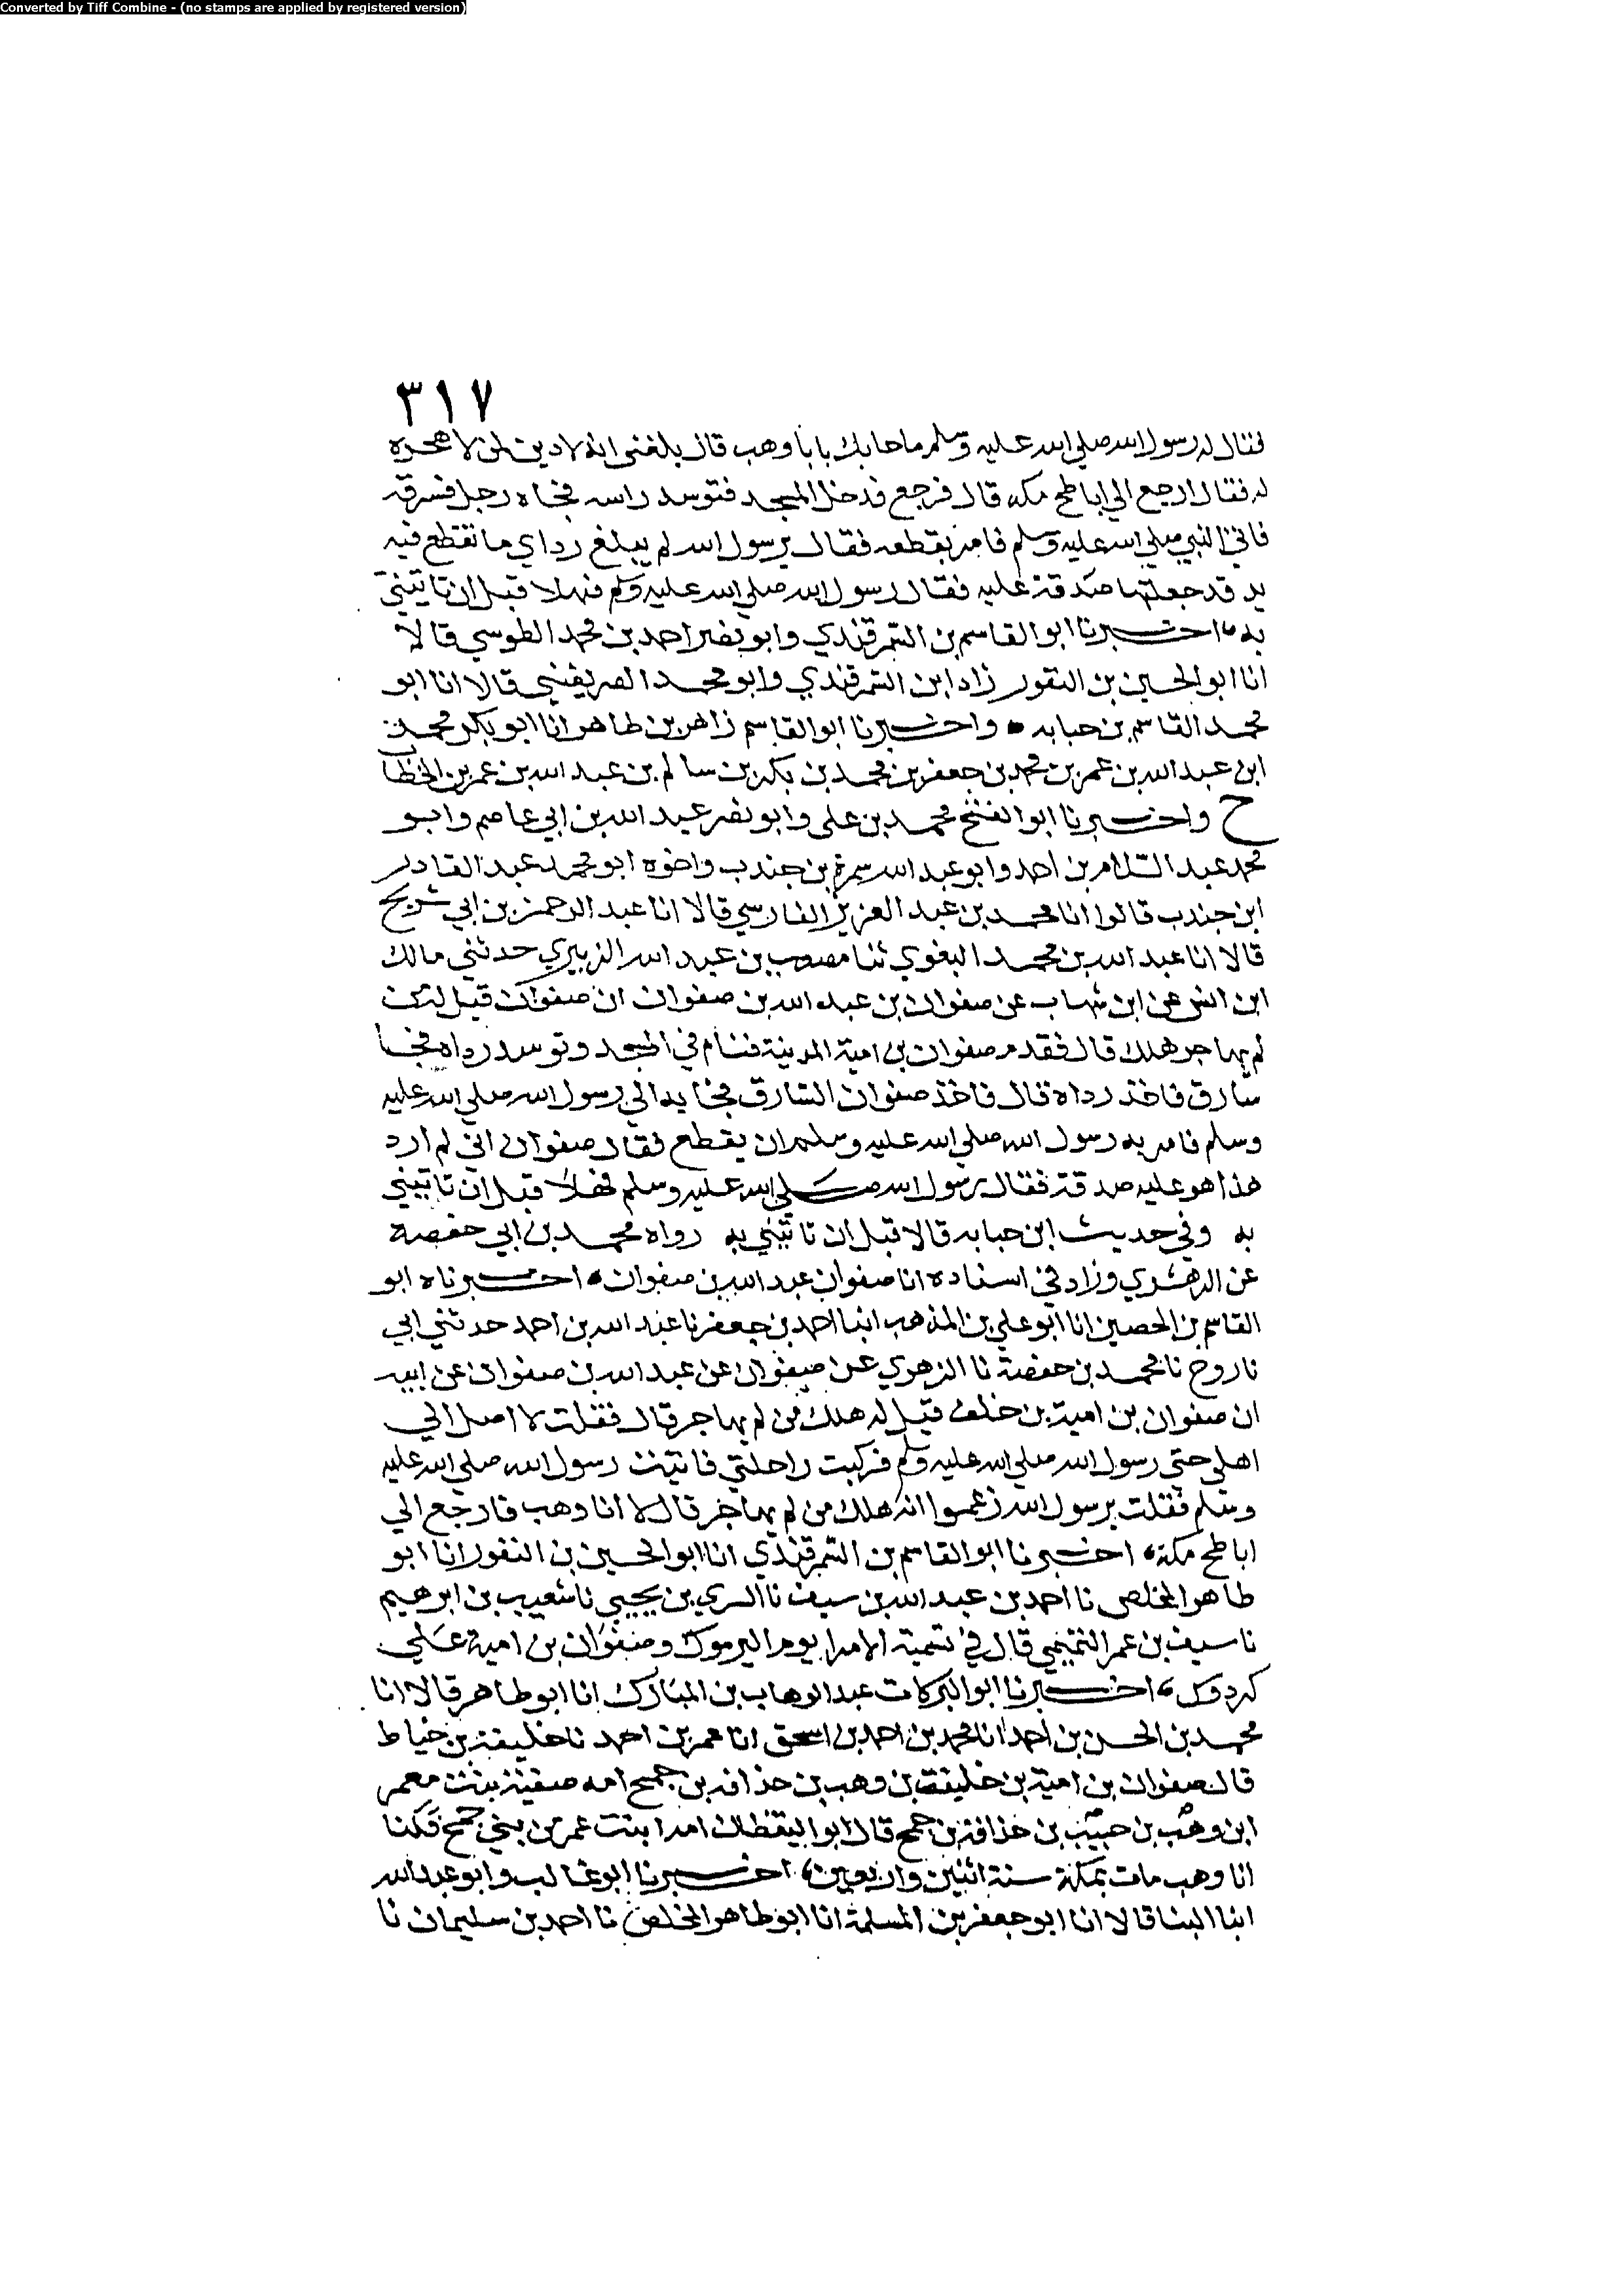 Converted by Tiff Combine - (no stamps are applied by registered version)
٣١٧
فقال له رسول الله صلي الله عليه وسلم ما جا بك يا با وهب قال بلغني انه لا دين لمن لا هجره
له فقال ارجع الي اباطح مكه قال فرجع فدخل المسجد فتوسد راسه فجاه رجل فسرقه
فاتي النبي صلي الله عليه وسلم فامر بقطعه فقال يرسول الله لم يبلغ رداي ما تقطع فيه
يد قد جعلتها صدقة عليه فقال رسول الله صلي الله عليه وسلم فهلا قبل ان تاتيني
به اخبرنا ابو القاسم بن السمرقندي وابو نصر احمد بن محمد الطوسي قالا
انا ابو الحسين بن النقور زاد ابن السمرقندي وابو محمد الصريفيني قالا انا ابو
محمد القاسم بن حبابه واخبرنا ابو القاسم زاهر بن طاهر انا ابو بكر محمد
ابن عبد الله بن عمر بن محمد بن جعفر بن محمد بن بكر بن سالم بن عبد الله بن عمر بن الخطاب
ح واخبرنا ابو الفتح محمد بن علي وابو نصر عبيد الله بن ابي عاصم وابو
محمد عبد السلام بن احمد وابو عبد الله سمرة بن جندب واخوه ابو محمد عبد القادر
ابن جندب قالوا انا محمد بن عبد العزيز الفارسي قالا انا عبد الرحمن بن ابي شريح
قالا انا عبد الله بن محمد البغوي ثنا مصعب بن عبد الله الزبيري حدثني مالك
ابن انس عن ابن شهاب عن صفوان بن عبد الله بن صفوان ان صفوان قيل له من
لم يهاجر هلك قال فقدم صفوان بن امية المدينة فنام في المسجد وتوسد رداه فجا
سارق فاخذ رداه قال فاخذ صفوان السارق فجا به الي رسول الله صلي الله عليه
وسلم فامر به رسول الله صلي الله عليه وسلم ان يقطع فقال صفوان اني لم ارد
هذا هو عليه صدقة فقال رسول الله صلي الله عليه وسلم فهلا قبل ان تاتيني
به وفي حديث ابن حبابه قالا قبل ان تاتيني به رواه محمد بن ابي حفصة
عن الزهري وزاد في اسناده انا صفوان عبد الله بن صفوان اخبرناه ابو
القاسم بن الحصين انا ابو علي بن المذهب انبا احمد بن جعفر نا عبد الله بن احمد حدثني ابي
نا روح نا محمد بن حفصة نا الزهري عن صفوان عن عبد الله بن صفوان عن ابيه
ان صفوان بن امية بن خلف قيل له هلك من لم يهاجر قال فقلت لا اصل الي
اهلي حتي رسول الله صلي الله عليه وسلم فركبت راحلتي فاتيت رسول الله صلي الله عليه
وسلم فقلت يرسول الله زعموا انه هلك من لم يهاجر قال لا انا وهب فارجع الي
اباطح مكة اخبرنا ابو القاسم بن السمرقندي انا ابو الحسين بن النقور انا ابو
طاهر المخلص نا احمد بن عبد الله بن سيف نا السري بن يحيي نا شعيب بن ابرهيم
نا سيف بن عمر التميمي قال في تسمية الامرا يوم اليرموك وصفوان بن امية علي
كردوس اخبرنا ابو البركات عبد الوهاب بن المبارك انا ابو طاهر قالا انا
محمد بن الحسن بن احمد انا محمد بن احمد بن اسحق انا عمر بن احمد نا خليفة بن خياط
قال صفوان بن امية بن خليفة بن وهب بن حذافه بن جمح امه صفية بنت معمر
ابن وهب بن حبيب بن حذافة بن جمح قال ابو اليقظان امرا بنت عمر من بني جمح فكنا
انا وهب مات بمكة سنة اثنين واربعين اخبرنا ابو غالب وابو عبد الله
ابنا البنا قالا انا ابو جعفر بن المسلمة انا ابو طاهر المخلص نا احمد بن سليمان نا